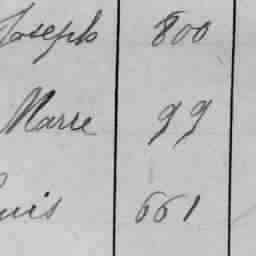 Joseph 800
Marie 99
ouis 661